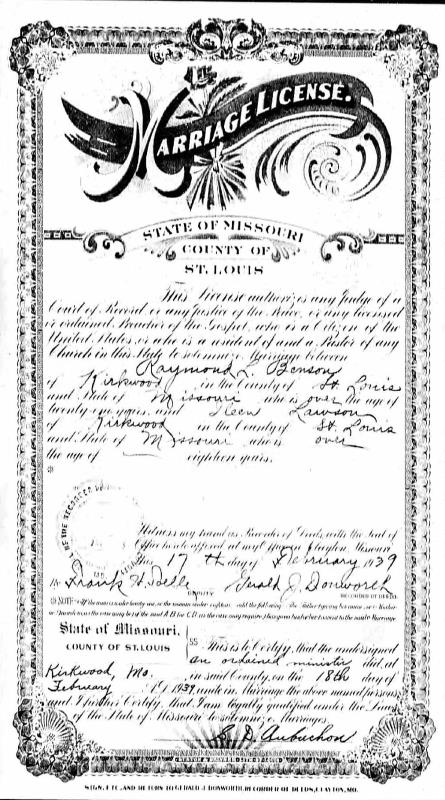 MARRIAGE LICENSE.
STATE OF MISSOURI
COUNTY OF
ST. LOUIS
This License authorizes any Judge of a
Court of Record or any Justice of the Peace, or any licensed
or ordained Preacher of the Gospel, who is a Citizen of the
United States, or who is a resident of and a Pastor of any
Church in this State, to solemnize Marriage between
Raymond L. Benson
of Kirkwood in the County of St. Louis
and State of Missouri who is over the age of
twenty-one years, and Ileen Lawson
of Kirkwood in the County of St. Louis
and State of Missouri who is over
the age of eighteen years.
Witness my hand as Recorder of Deeds, with the Seal of
Office hereto affixed at my Office in Clayton, Missouri
this 17th day of February 1939
By Frank H. Gerald J. Donworth
DEPUTY RECORDER OF DEEDS
State of Missouri,
COUNTY OF ST. LOUIS
SS This is to Certify, that the undersigned
an ordained minister did, at
Kirkwood, Mo. in said County, on the 18th day of
February A.D. 1939, unite in Marriage the above named persons,
and I further Certify, that I am legally qualified under the Laws
of the State of Missouri to solemnize Marriages.
D. Aubuchon
SIGN, ETC. AND RETURN TO GERALD J. DONWORTH, RECORDER OF DEEDS, CLAYTON, MO.